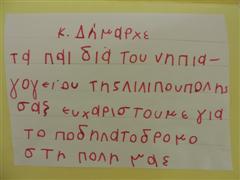 κ. Δήμαρχε
τα παι διά του νηπια-
γογείου της λιλιπουπολης
σας ευχαριστουμε για
το ποδηλατοδρομο
στη πολη μας